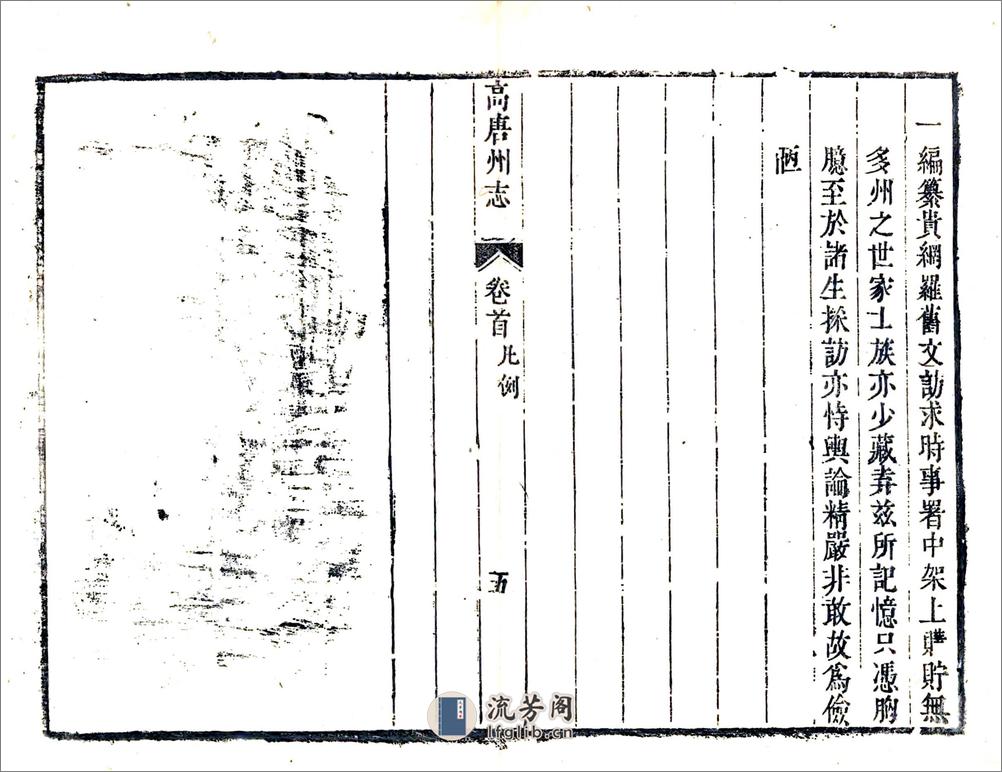 一編纂貴網羅舊文訪求時事署中架上購貯無
多州之世家士族亦少藏弆茲所記憶只憑胸
臆至於諸生採訪亦恃輿論精嚴非敢故為儉
陋
高唐州志
卷首
凡例
五
流芳阁
lfglib.cn